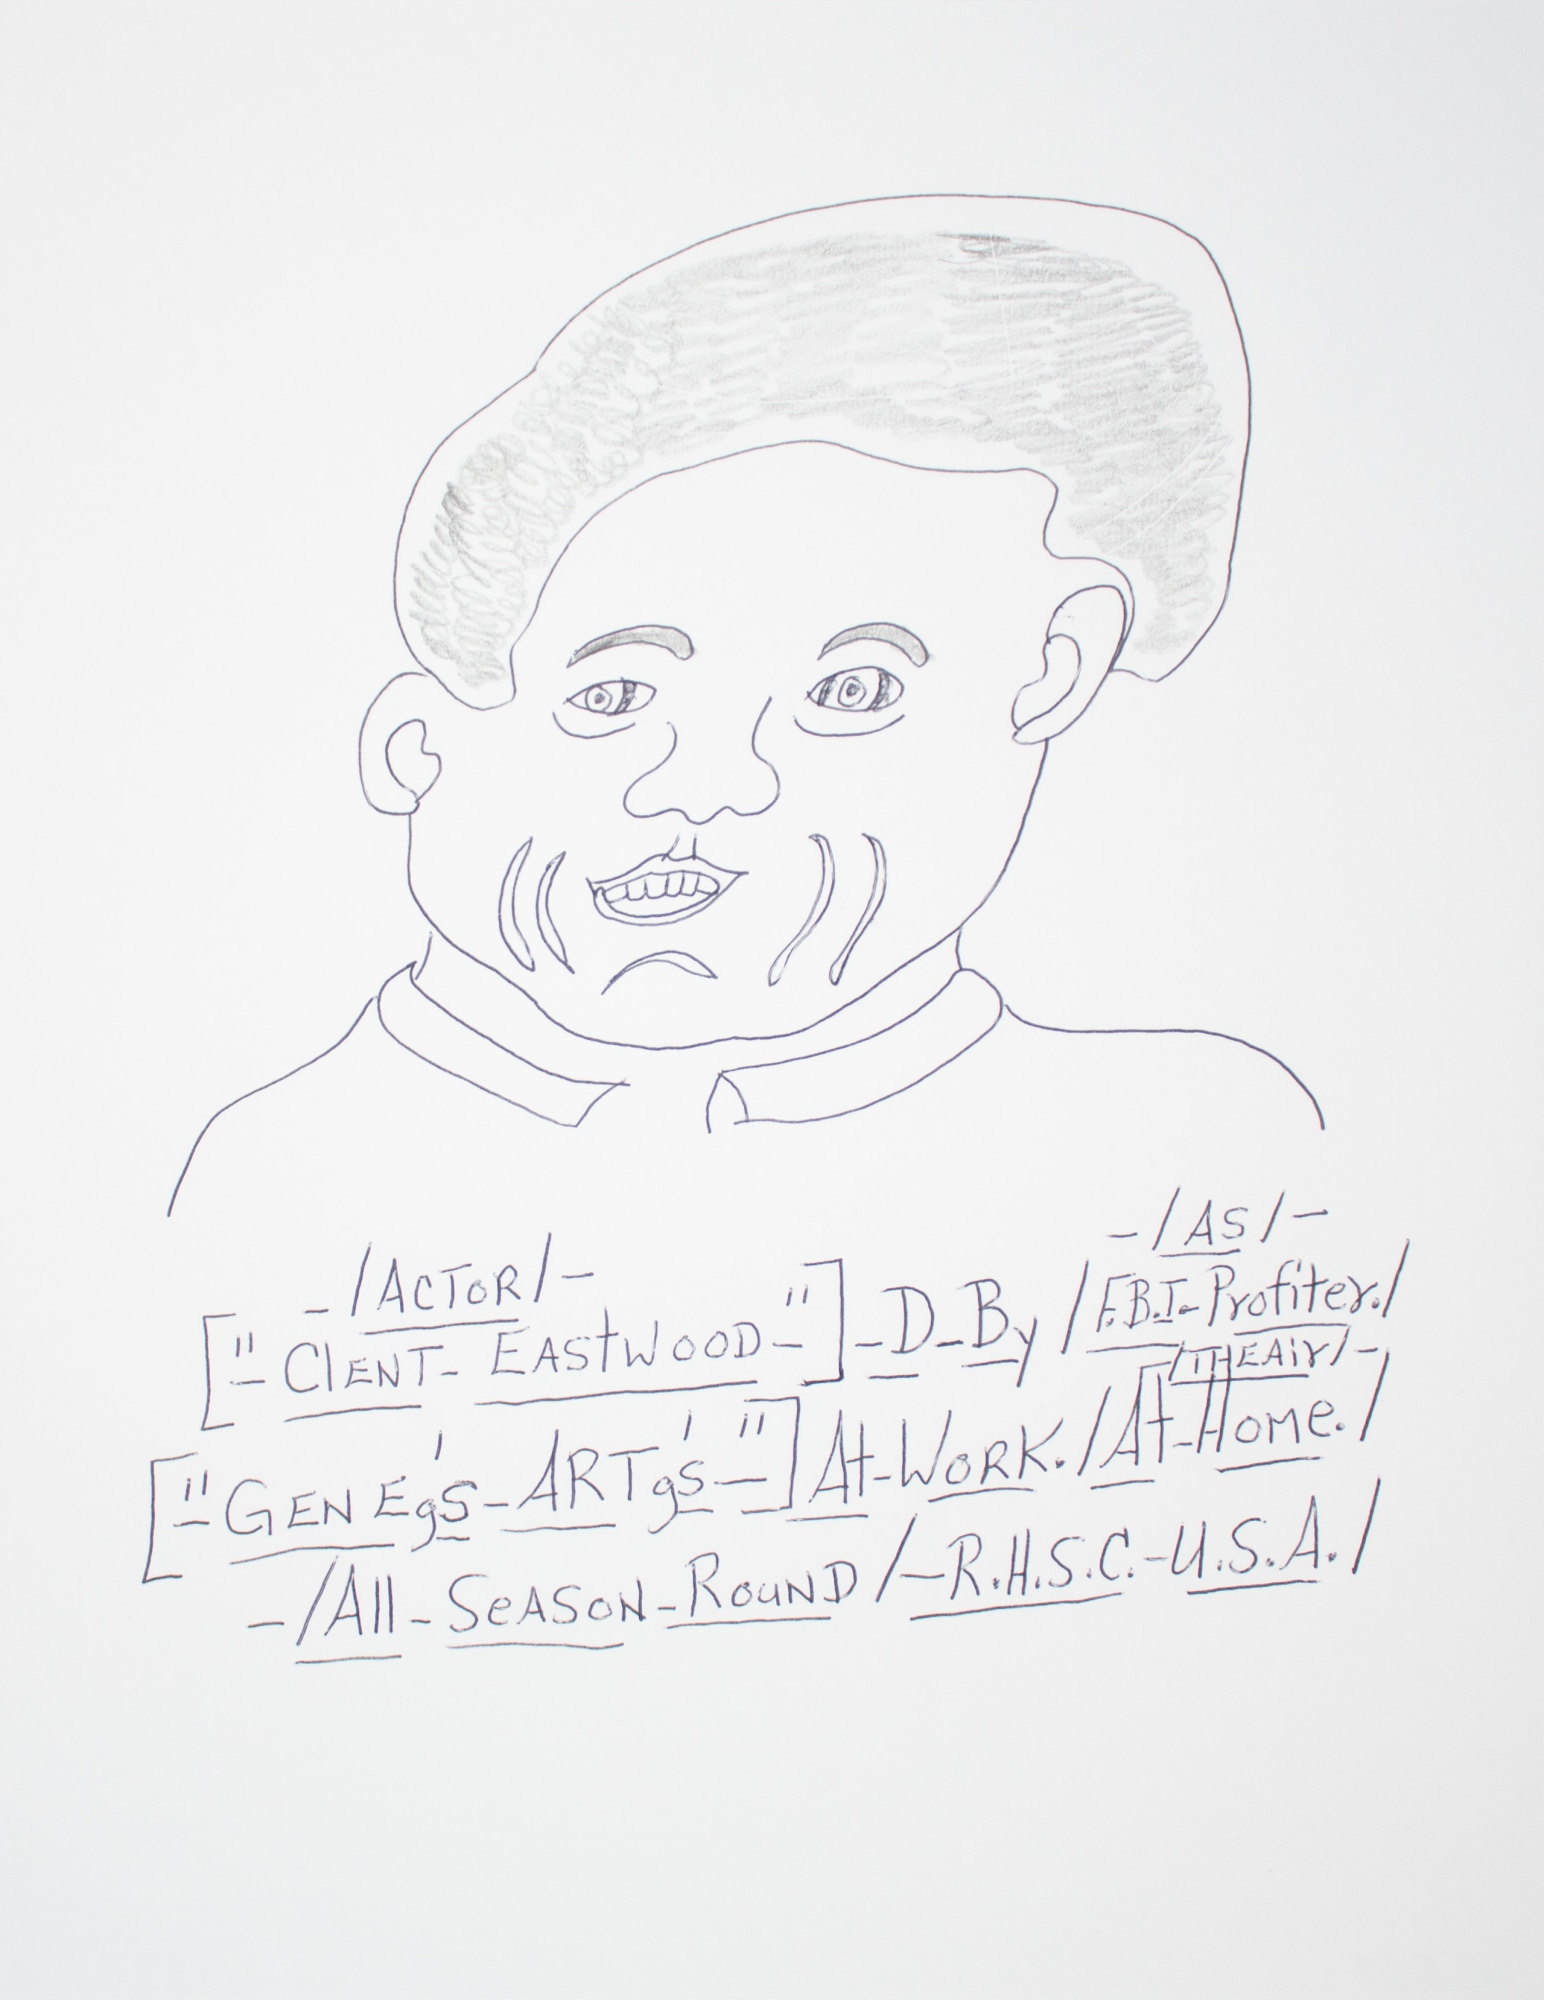 -/As/-
-/Actor/-
["-Clent-Eastwood-"]-D-By/F.B.I.-Profiter./
/THEAir/-
["-GEN Eg'S-ARTg'S-"] At-Work./At-Home./
-/All-SeASoN-RouND/-R.H.S.C.-U.S.A./